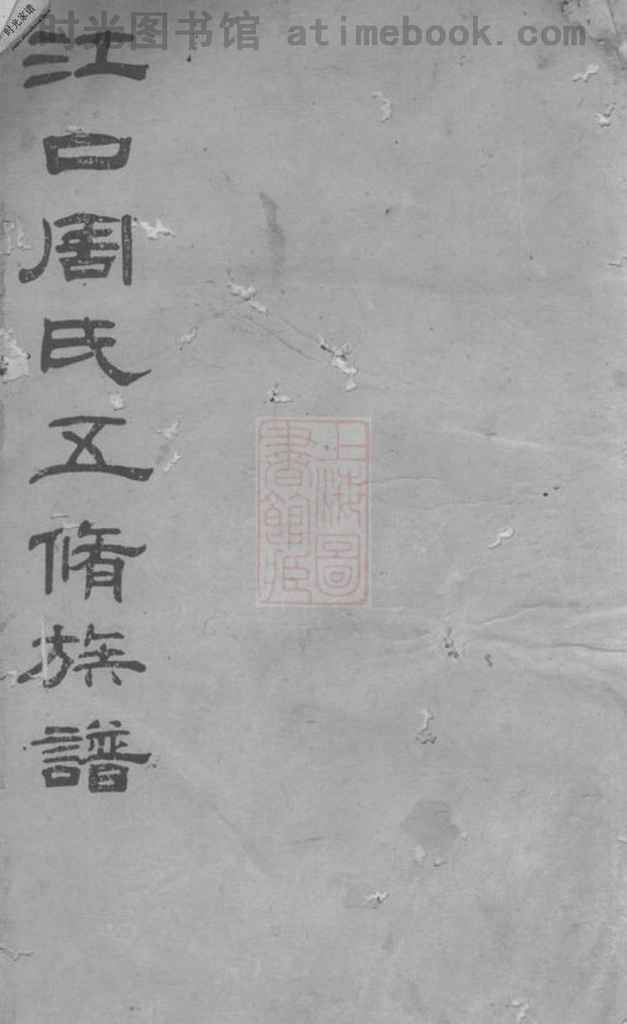 时光家谱
时光图书馆 atimebook.com
江口周氏五脩族譜
上海圖
書館藏